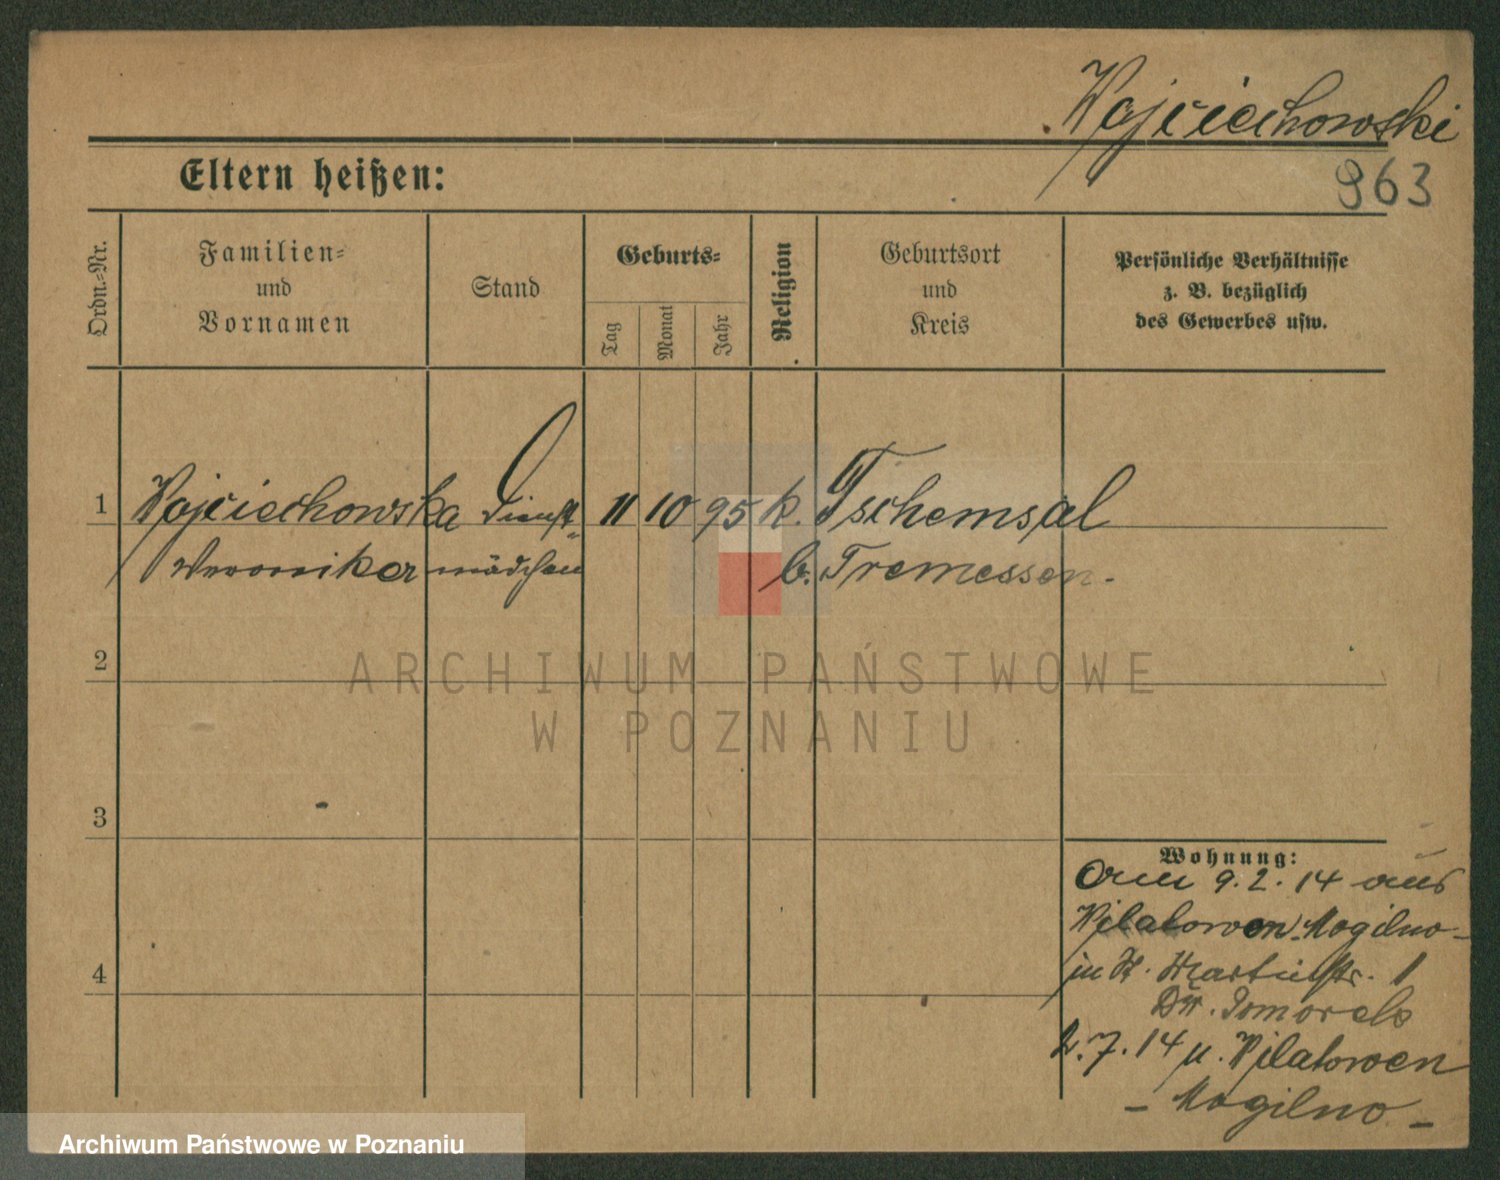 Wojciechowski
963
Eltern heißen:
Ordn.-Nr.
Familien-
und
Vornamen
Stand
Geburts-
Tag
Monat
Jahr
Religion
Geburtsort
und
Kreis
Persönliche Verhältnisse
z. B. bezüglich
des Gewerbes usw.
1 Wojciechowska Dienst- 11 10 95 k. Tschemsal
Weronika mädchen b. Tremessen.
2
3
4
ARCHIWUM PAŃSTWOWE
W POZNANIU
Wohnung:
am 9.2.14 aus
Wilatowen-Mogilno-
in St. Martinstr. 1
2.7.14 n. Wilatowen
- Mogilno -
Archiwum Państwowe w Poznaniu